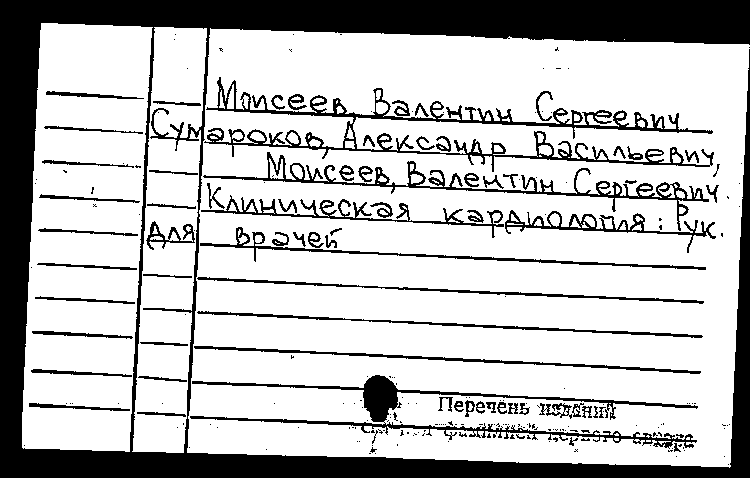 Моисеев, Валентин Сергеевич.
Сумароков, Александр Васильевич,
Моисеев, Валентин Сергеевич.
Клиническая кардиология: Рук.
для врачей
Перечень изданий
фамилией первого автора